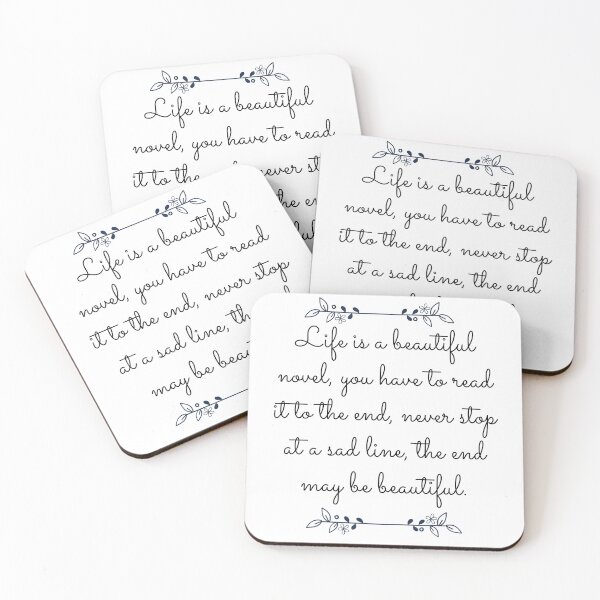 Life is a beautiful
novel, you have to read
it to the never stop
the end
Life is a beautiful
novel, you have to read
it to the end, never stop
at a sad line, the end
Life is a beautiful
novel, you have to read
it to the end, never stop
at a sad line, the
may be
Life is a beautiful
novel, you have to read
it to the end, never stop
at a sad line, the end
may be beautiful.